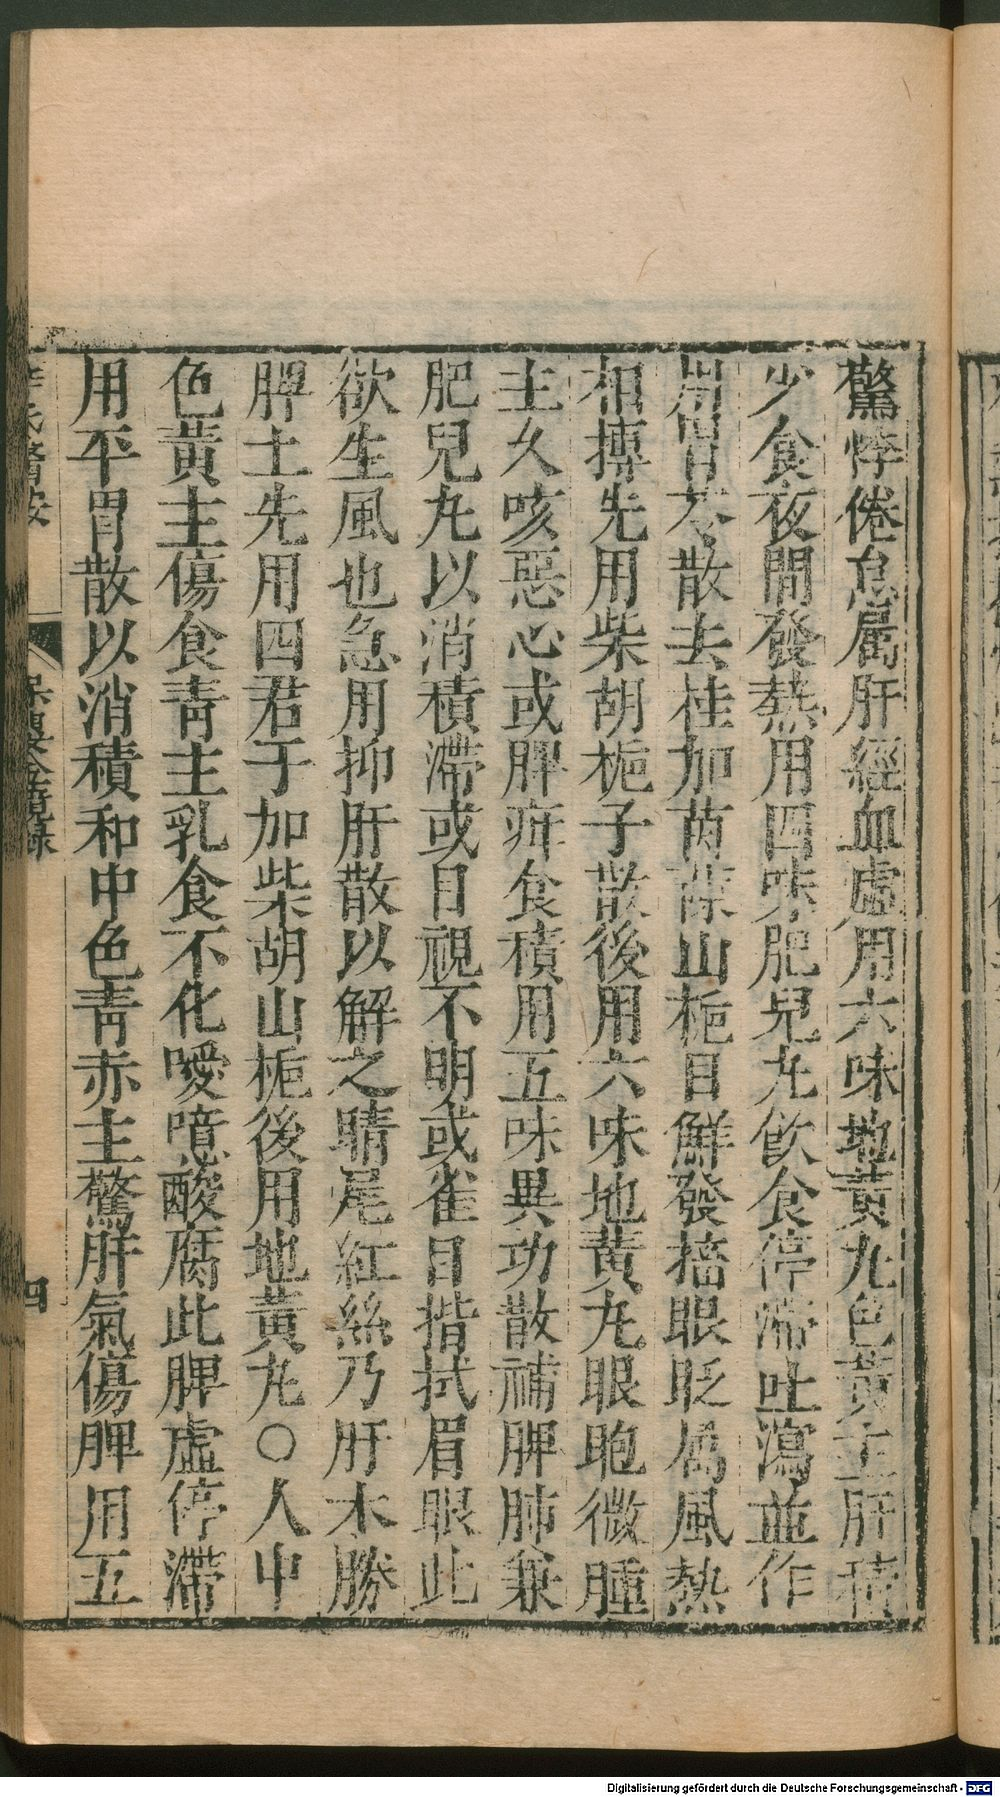 驚悸倦怠属肝經血虛用六味地黃丸色黃主肝積
少食夜間發熱用四味肥兒丸飲食停滯吐瀉並作
用胃苓散去桂加茵蔯山梔目鮮發搐眼眨属風熱
相摶先用柴胡梔子散後用六味地黃丸眼胞微腫
主久咳惡心或脾疳食積用五味異功散補脾肺兼
肥兒丸以消積滯或目視不明或雀目揩拭眉眼此
欲生風也急用抑肝散以解之睛尾紅絲乃肝木勝
脾土先用四君子加柴胡山梔後用地黃丸○人中
色黃主傷食青主乳食不化噯噫酸腐此脾虛停滯
用平胃散以消積和中色青赤主驚肝氣傷脾用五
薛氏醫按
保嬰金鏡錄
四
Digitalisierung gefördert durch die Deutsche Forschungsgemeinschaft - DFG